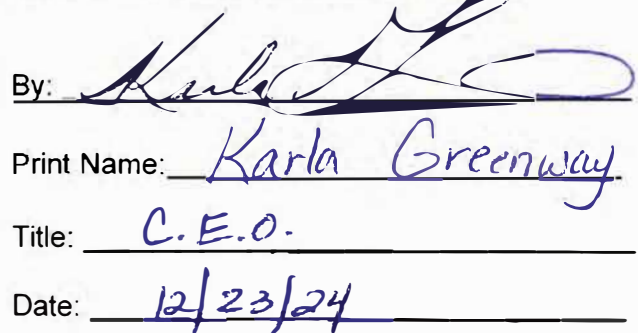 By: Karla
Print Name: Karla Greenway
Title: C.E.O.
Date: 12/23/24